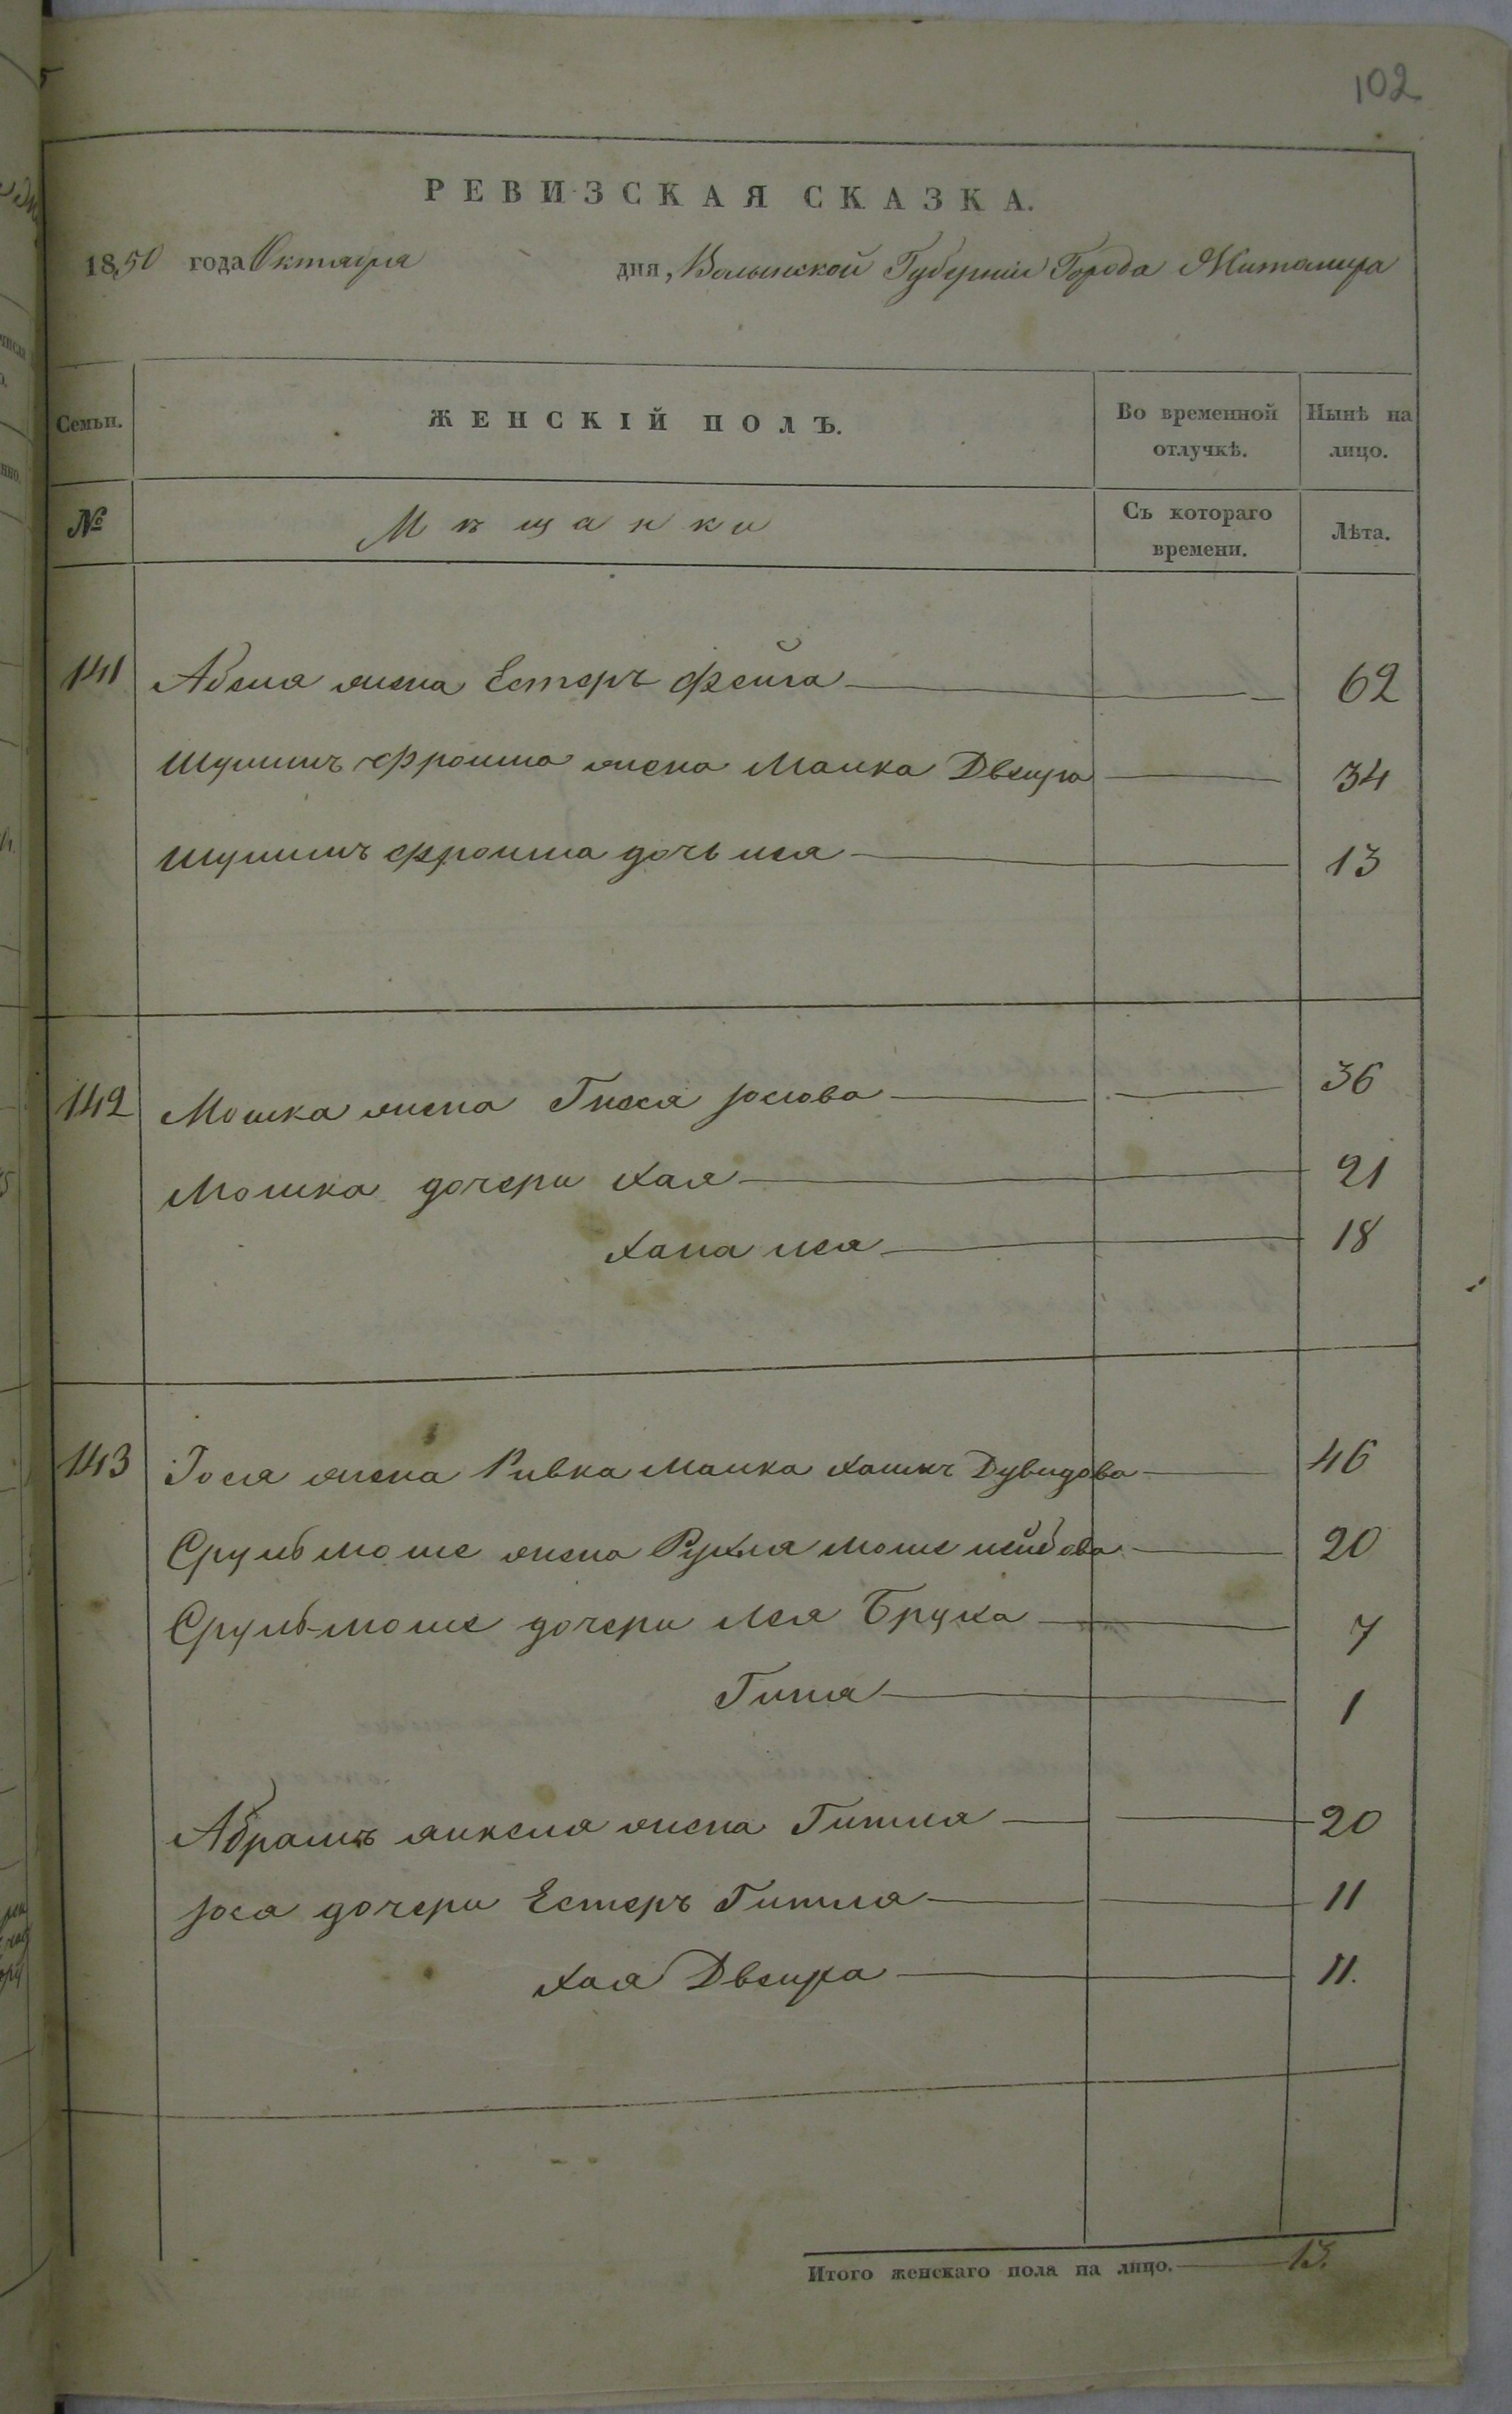 102
РЕВИЗСКАЯ СКАЗКА.
1850 года Октября дня, Волынской Губернии Города Житомира
Семьи. ЖЕНСКІЙ ПОЛЪ. Во временной отлучкѣ. Нынѣ на лицо.
№ Мѣщанки Съ котораго времени. Лѣта.
141 Абеля жена Естеръ Фейга 62
Шулимъ Фроима жена Малка Двейра 34
Шулимъ Фроима дочь Лея 13
142 Мошка жена Гнеся Іосіова 36
Мошка дочери Хая 21
Хана Лея 18
143 Іося жена Ривка Малка Дувидова 46
Срульмоше жена Рухля Мошелейбова 20
Срульмоше дочери Лея Бруха 7
Гитля 1
Абрамъ Янкеля жена Гитля 20
Іося дочери Естеръ Гитля 11
Хая Двейра 11.
Итого женскаго пола на лицо. 13.